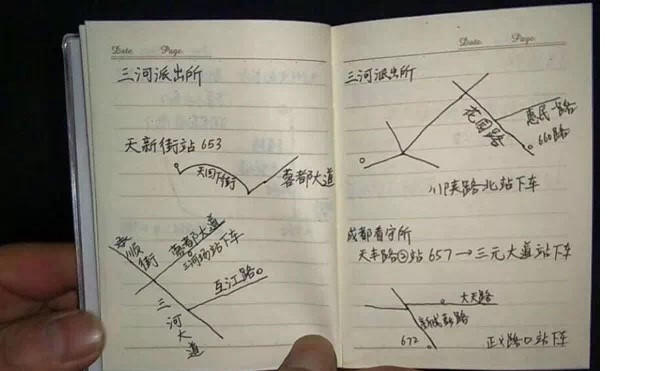 Date. Page.
三河派出所
天新街站 653
天回下街
蓉都大道
蓉都大道
三河场站下车
顺街
互江路
三河大道
Date. Page.
三河派出所
花园路
惠民一路
660路
川陕路北站下车
成都看守所
天丰路②站 657→三元大道站下车
大天路
新成彭路
672
正义路口站下车